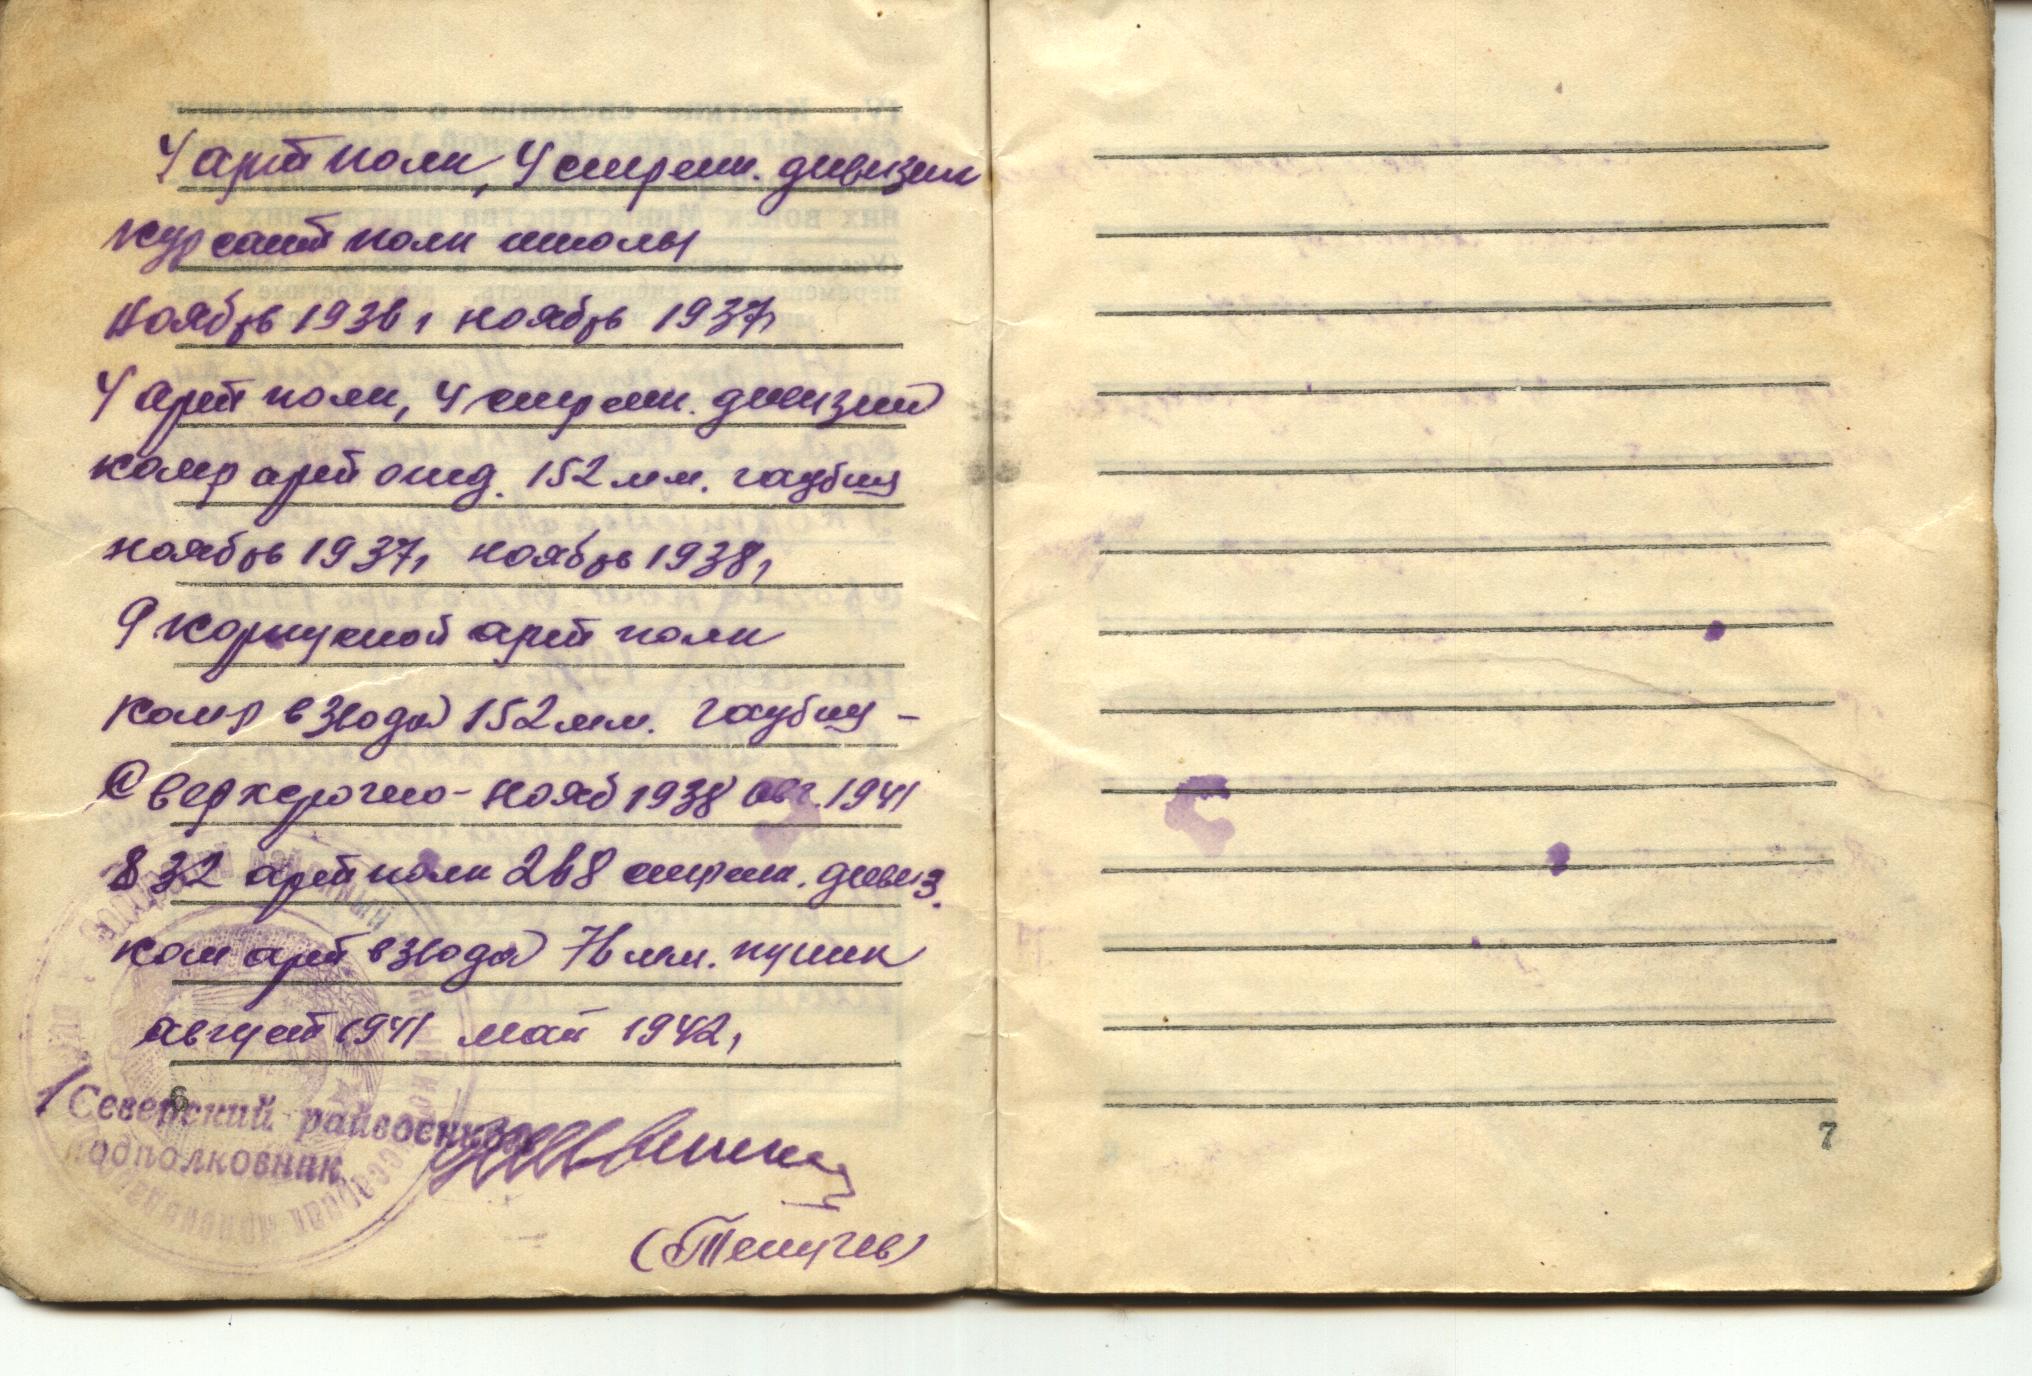 4 арт полк, 4 стрелк. дивизии
курсант полк школы
ноябрь 1936, ноябрь 1937
4 арт полк, 4 стрелк. дивизии
комр арт отд. 152 мм. гаубиц
ноябрь 1937, ноябрь 1938,
9 корпусной арт полк
комр взвода 152 мм. гаубиц –
Сверхсрочно – нояб 1938 авг. 1941
832 арт полк 268 стрелк. дивиз.
ком арт взвода 76 мм. пушек
август 1941 май 1942,
6
Северский райвоенком
подполковник
7